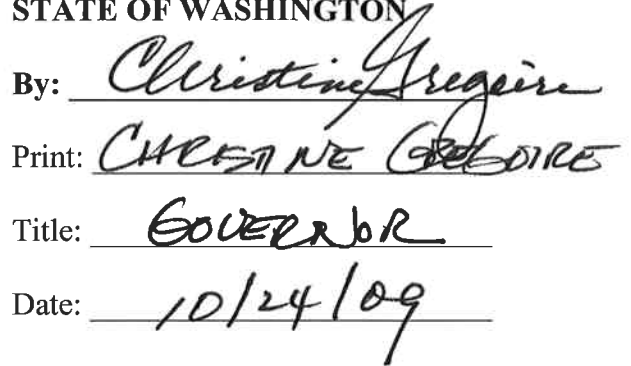 STATE OF WASHINGTON
By: Christine Gregoire
Print: CHRISTINE GREGOIRE
Title: GOVERNOR
Date: 10/24/09